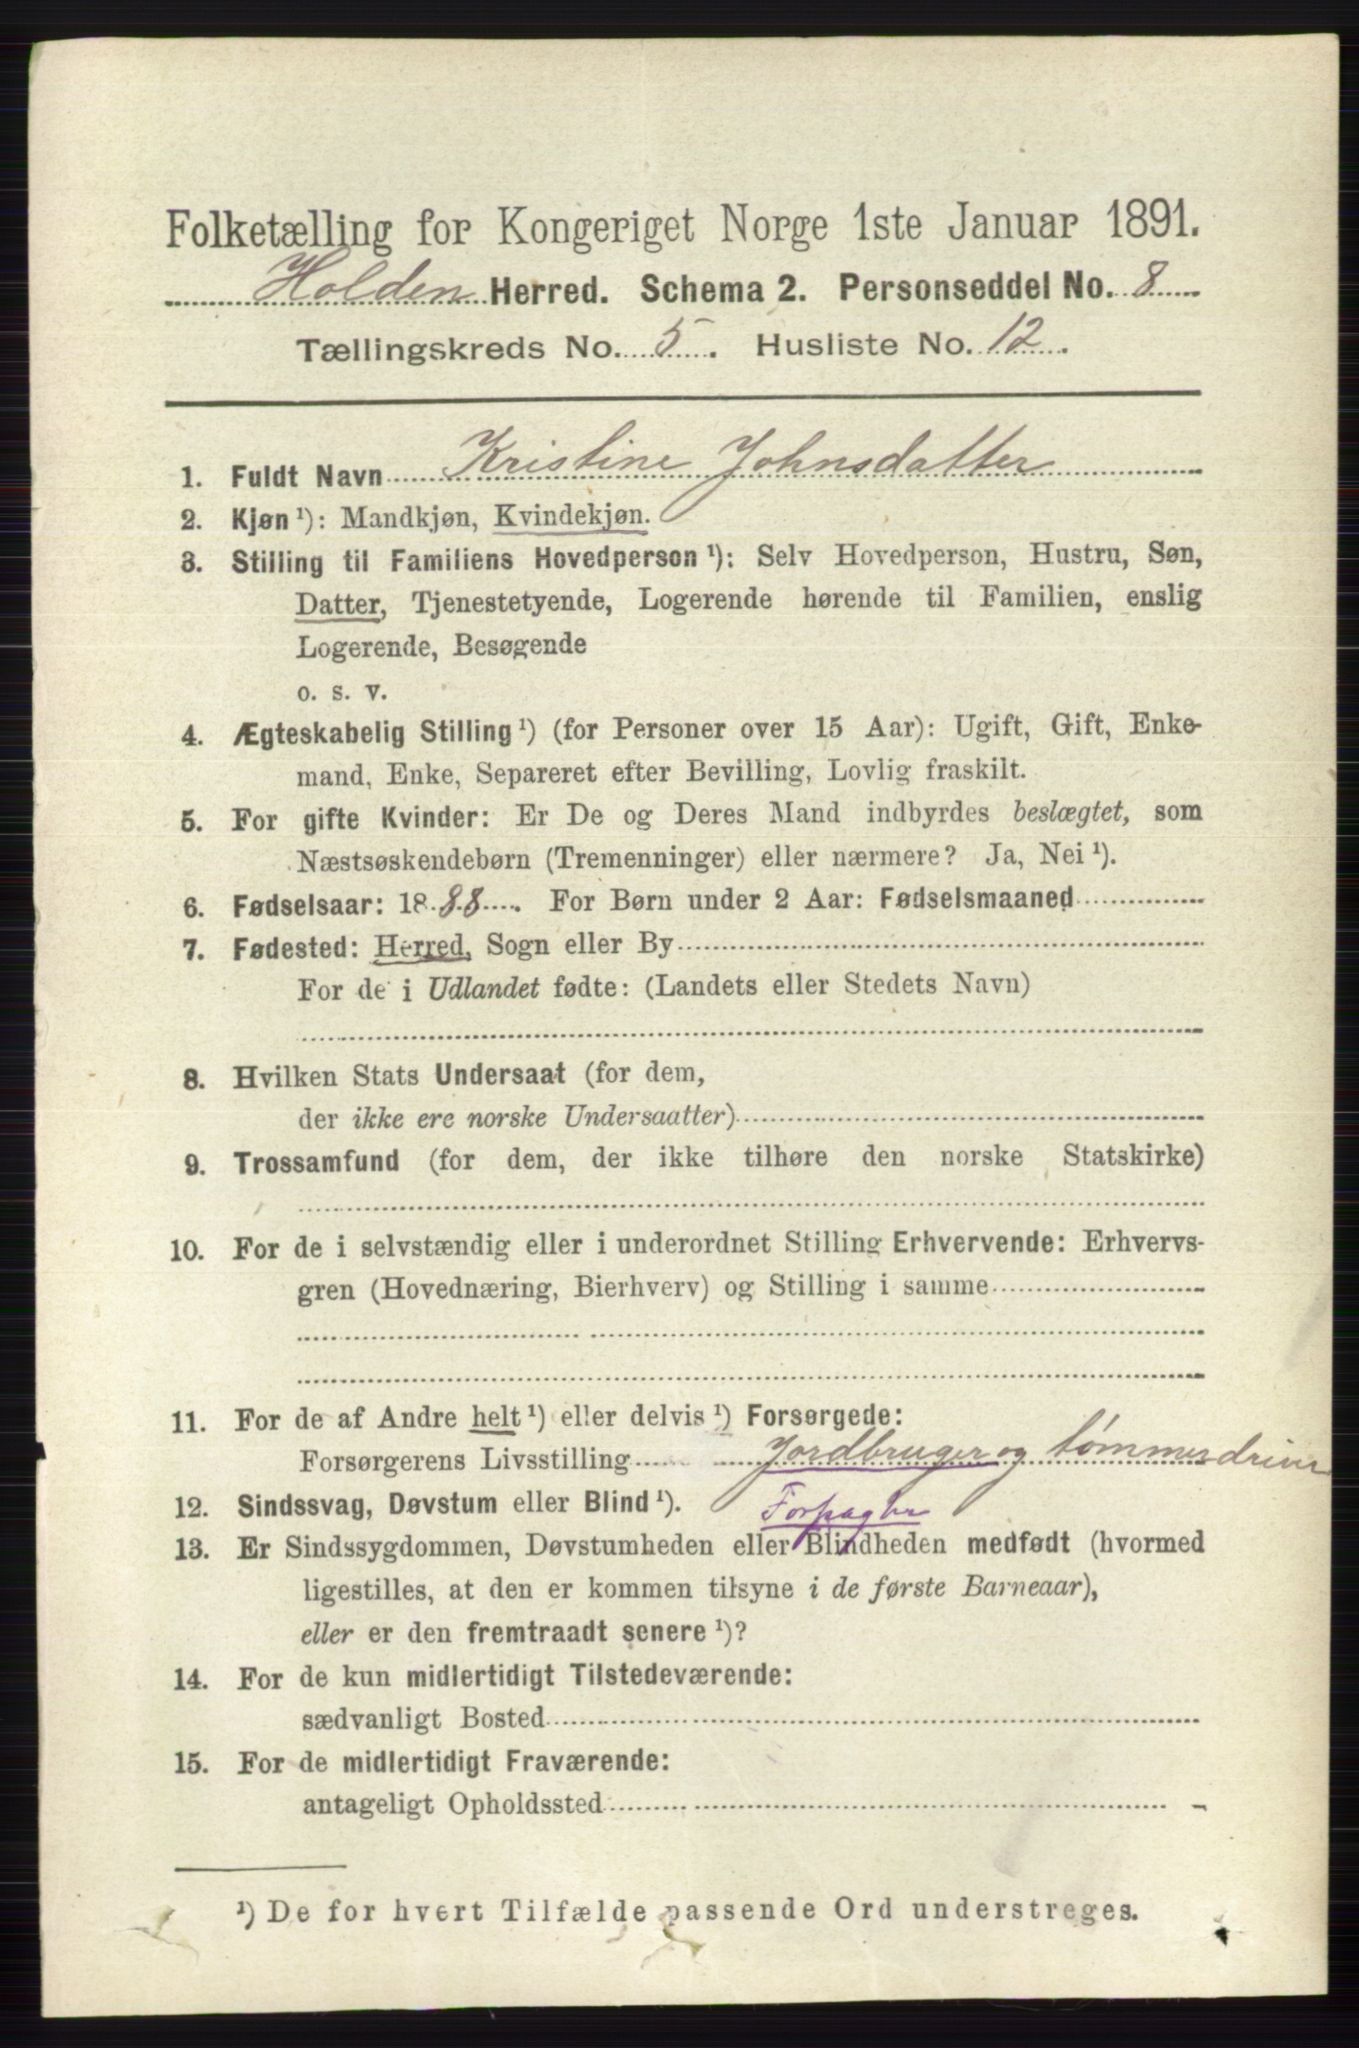 Folketælling for Kongeriget Norge 1ste Januar 1891.
Holden Herred. Schema 2. Personseddel No. 8
Tællingskreds No. 5. Husliste No. 12.
1. Fuldt Navn Kristine Johnsdatter
2. Kjøn ¹): Mandkjøn, Kvindekjøn.
3. Stilling til Familiens Hovedperson ¹): Selv Hovedperson, Hustru, Søn,
Datter, Tjenestetyende, Logerende hørende til Familien, enslig
Logerende, Besøgende
o. s. v.
4. Ægteskabelig Stilling ¹) (for Personer over 15 Aar): Ugift, Gift, Enke-
mand, Enke, Separeret efter Bevilling, Lovlig fraskilt.
5. For gifte Kvinder: Er De og Deres Mand indbyrdes beslægtet, som
Næstsøskendebørn (Tremenninger) eller nærmere? Ja, Nei ¹).
6. Fødselsaar: 1888. For Børn under 2 Aar: Fødselsmaaned
7. Fødested: Herred, Sogn eller By
For de i Udlandet fødte: (Landets eller Stedets Navn)
8. Hvilken Stats Undersaat (for dem,
der ikke ere norske Undersaatter)
9. Trossamfund (for dem, der ikke tilhøre den norske Statskirke)
10. For de i selvstændig eller i underordnet Stilling Erhvervende: Erhvervs-
gren (Hovednæring, Bierhverv) og Stilling i samme
11. For de af Andre helt ¹) eller delvis ¹) Forsørgede:
Forsørgerens Livsstilling Jordbruger og tømmerdriver
12. Sindssvag, Døvstum eller Blind ¹). Forpagter
13. Er Sindssygdommen, Døvstumheden eller Blindheden medfødt (hvormed
ligestilles, at den er kommen tilsyne i de første Barneaar),
eller er den fremtraadt senere ¹)?
14. For de kun midlertidigt Tilstedeværende:
sædvanligt Bosted
15. For de midlertidigt Fraværende:
antageligt Opholdssted
¹) De for hvert Tilfælde passende Ord understreges.